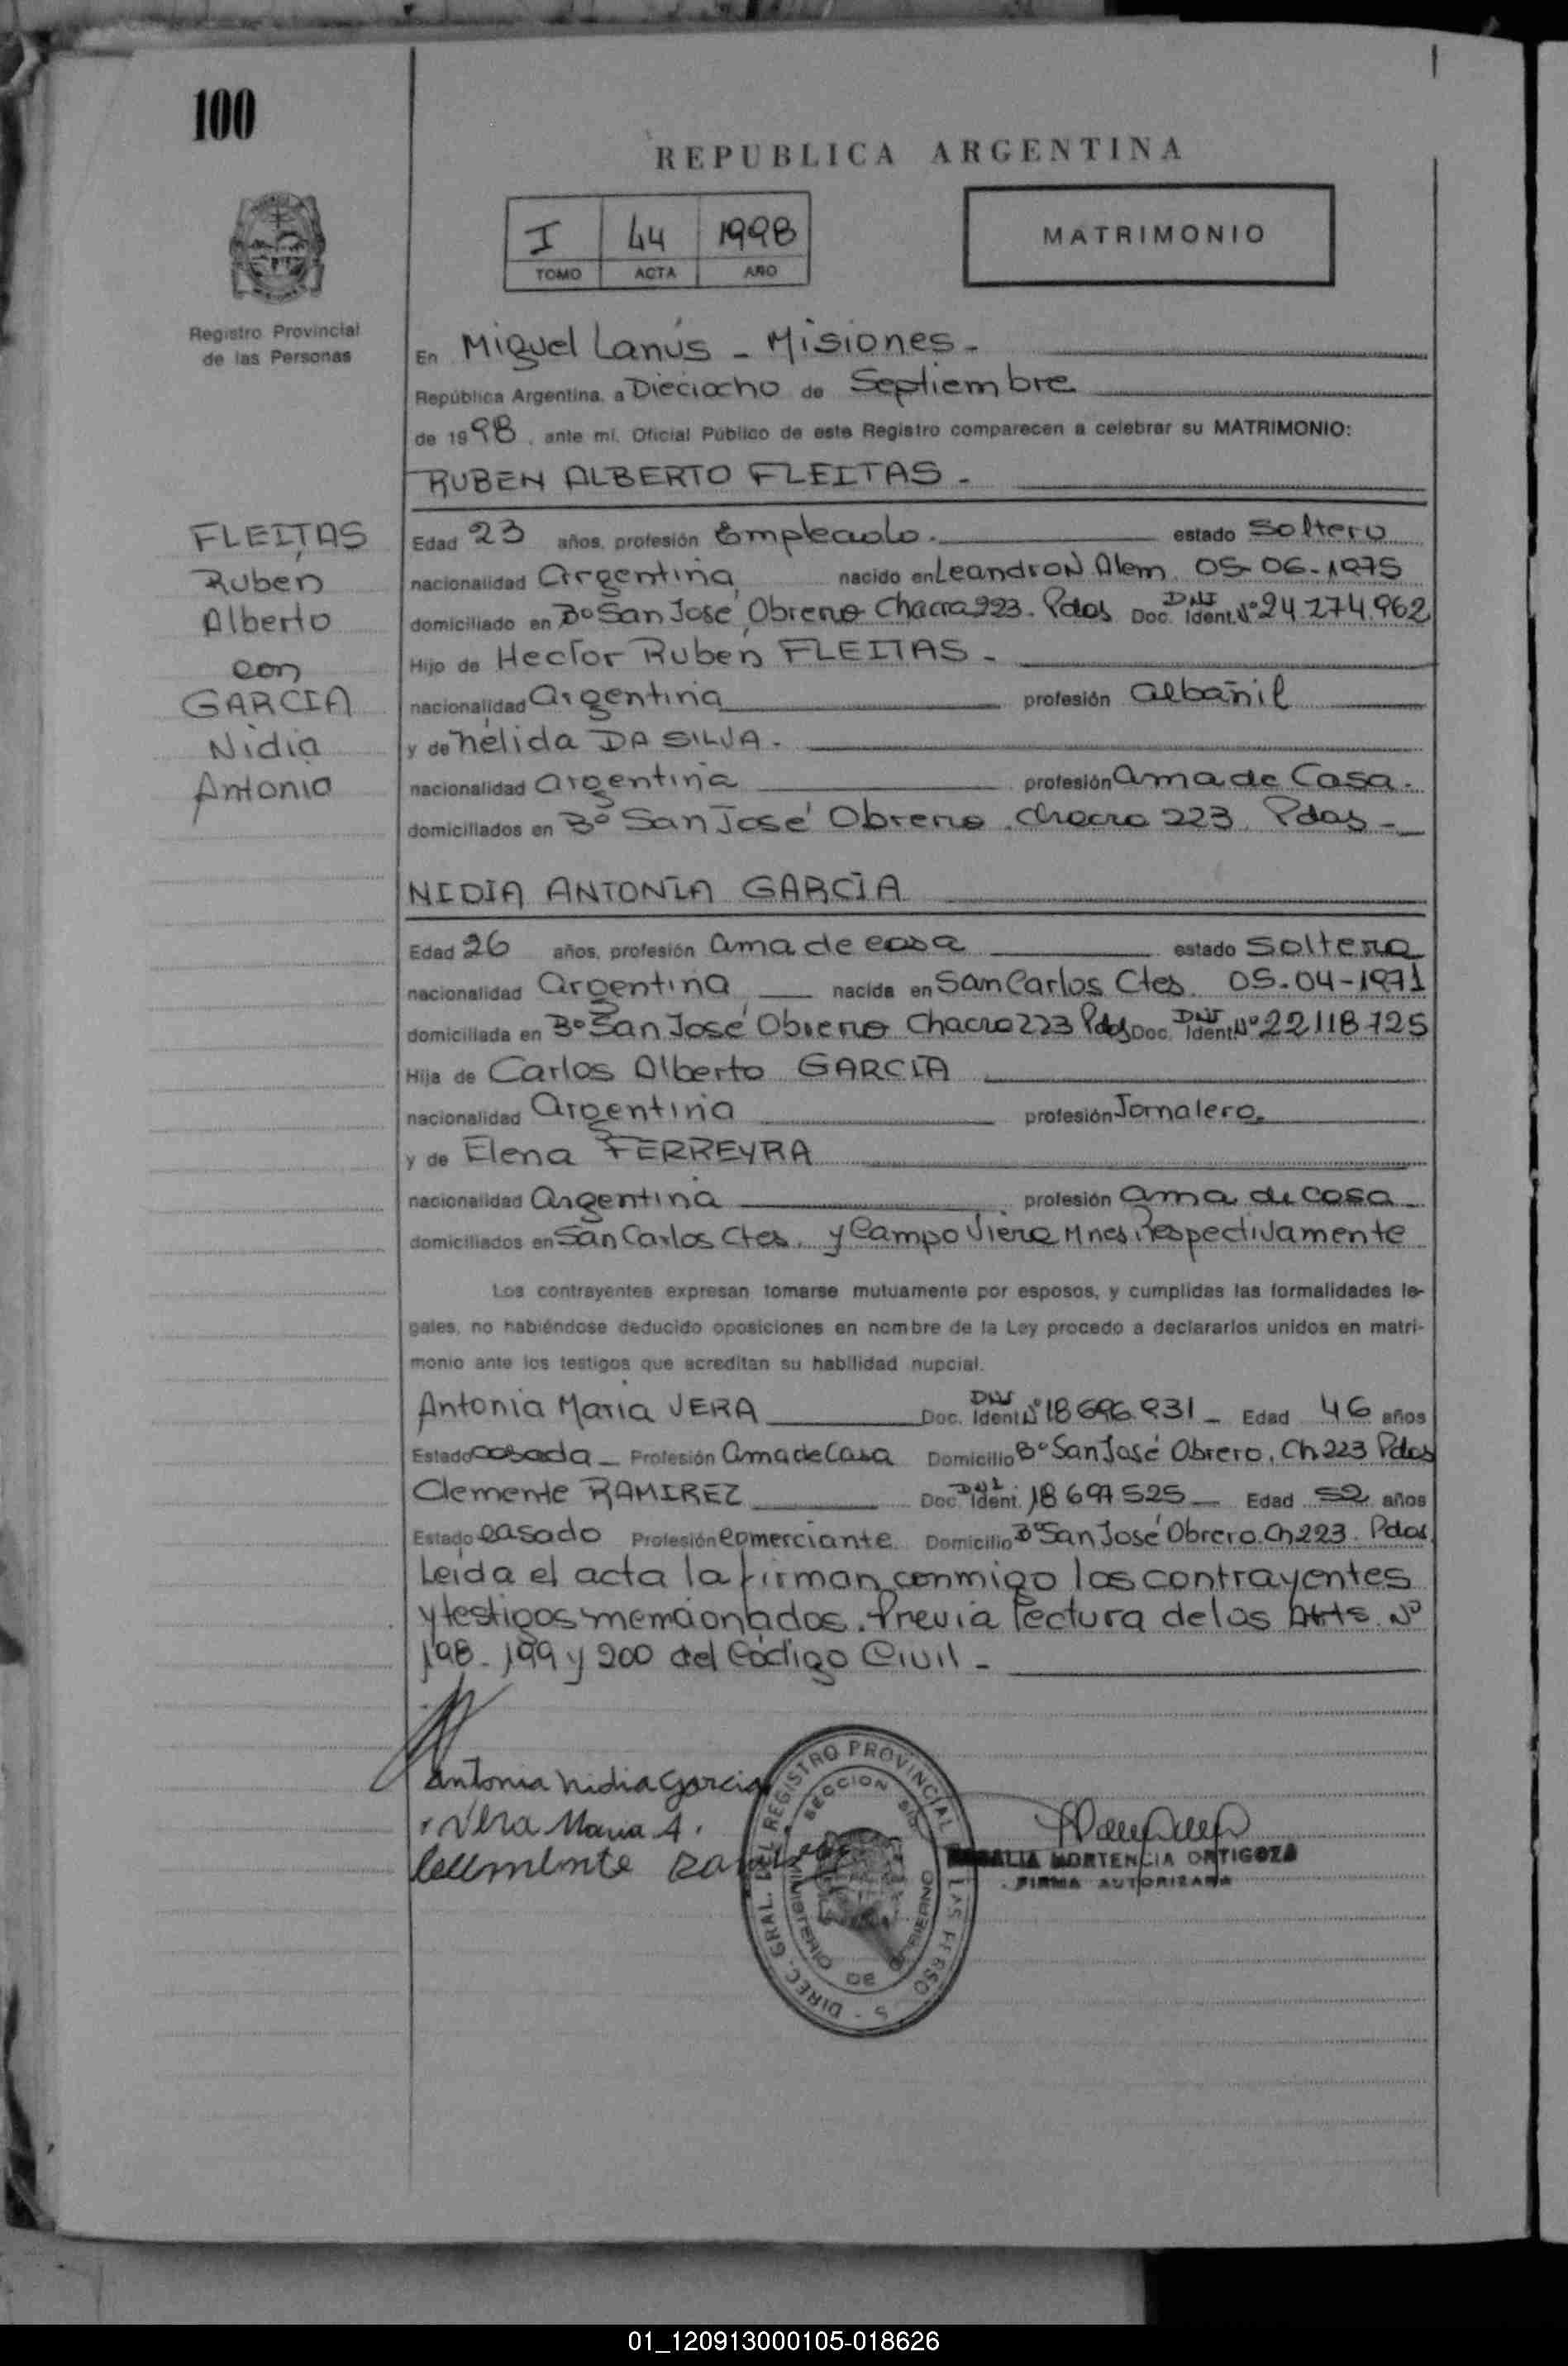 100
REPUBLICA ARGENTINA
I 44 1998
TOMO ACTA AÑO
MATRIMONIO
Registro Provincial
de las Personas
En Miguel Lanús - Misiones -
República Argentina, a Dieciocho de Septiembre
de 1998, ante mí, Oficial Público de este Registro comparecen a celebrar su MATRIMONIO:
RUBEN ALBERTO FLEITAS -
FLEITAS
Ruben
Alberto
con
GARCIA
Nidia
Antonia
Edad 23 años, profesión Empleado. estado Soltero
nacionalidad Argentina nacido en Leandro N Alem 05-06-1975
domiciliado en Bº San José Obrero Chacra 223. Pdas Doc. Ident. DNI Nº 24.274.962
Hijo de Hector Ruben FLEITAS -
nacionalidad Argentina profesión albañil
y de nélida DA SILVA.
nacionalidad argentina profesión ama de Casa.
domiciliados en Bº San José Obrero. Chacra 223. Pdas -
NIDIA ANTONIA GARCÍA
Edad 26 años, profesión ama de casa estado Soltera
nacionalidad argentina nacida en San Carlos Ctes. 05-04-1971
domiciliada en Bº San José Obrero Chacra 223 Pdas Doc. Ident. DNI Nº 22.118.725
Hija de Carlos Alberto GARCIA
nacionalidad Argentina profesión Jornalero.
y de Elena FERREYRA
nacionalidad argentina profesión ama de casa
domiciliados en San Carlos Ctes. y Campo Viera Mnes Respectivamente
Los contrayentes expresan tomarse mutuamente por esposos, y cumplidas las formalidades le-
gales, no habiéndose deducido oposiciones en nombre de la Ley procedo a declararlos unidos en matri-
monio ante los testigos que acreditan su habilidad nupcial.
Antonia Maria VERA Doc. Ident. DNI Nº 18.696.931 - Edad 46 años
Estado casada - Profesión ama de Casa Domicilio Bº San José Obrero, Ch 223 Pdas
Clemente RAMIREZ Doc. Ident. DNI 18.697.525 - Edad 52 años
Estado casado Profesión comerciante Domicilio Bº San José Obrero. Ch 223. Pdas.
Leida el acta la firman conmigo los contrayentes
y testigos mencionados. Previa lectura de los Arts. Nº
198 - 199 y 200 del Código Civil -
Antonia Nidia Garcia
Vera Maria A.
Clemente
DIREC. GRAL. DEL REGISTRO PROVINCIAL LAS PERSO S -
SECCION
MINISTERIO DE GOBIERNO
HORTENCIA ORTIGOZA
FIRMA AUTORIZADA
01_120913000105-018626